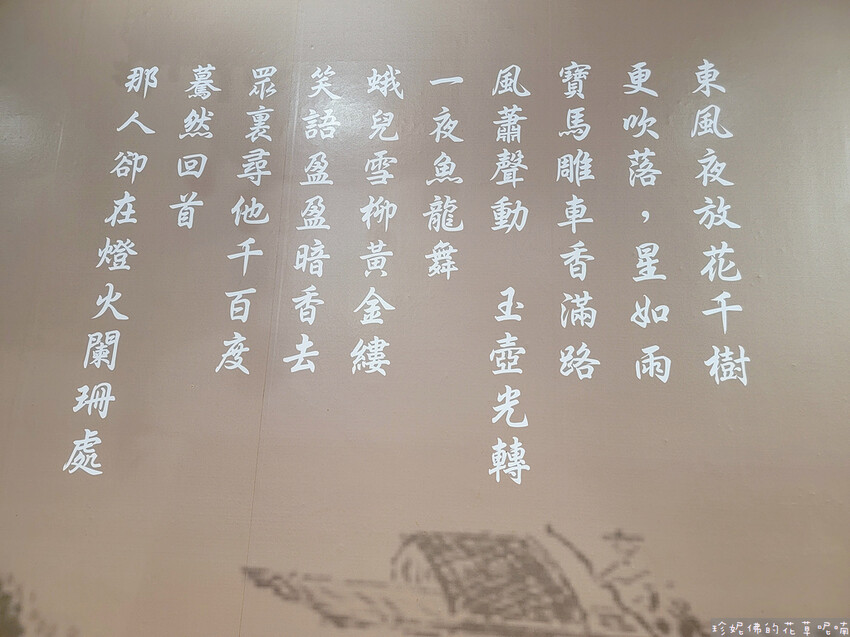 東風夜放花千樹
更吹落，星如雨
寶馬雕車香滿路
風蕭聲動　玉壺光轉
一夜魚龍舞
蛾兒雪柳黃金縷
笑語盈盈暗香去
眾裏尋他千百度
驀然回首
那人卻在燈火闌珊處
珍妮佛的花草呢喃